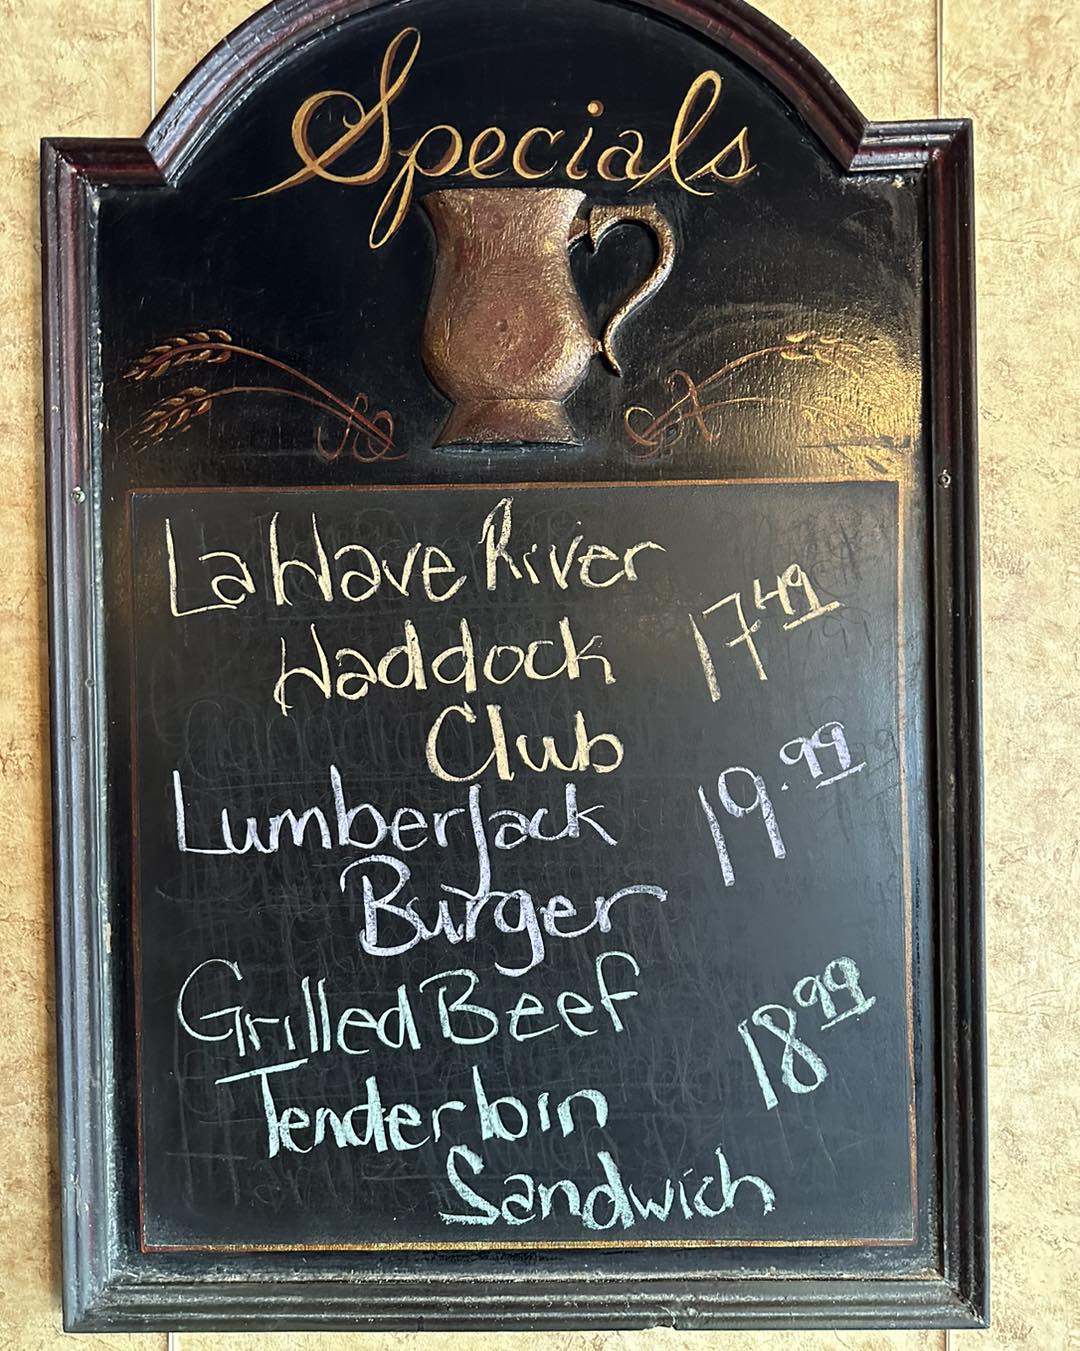 Specials
LaHave River
Haddock 17.49
Club
LumberJack 19.99
Burger
Grilled Beef
Tenderloin 18.99
Sandwich